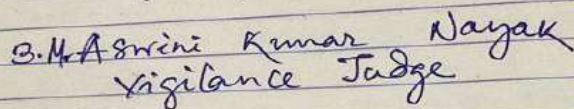 3. M. Aswini Kumar Nayak
Vigilance Judge